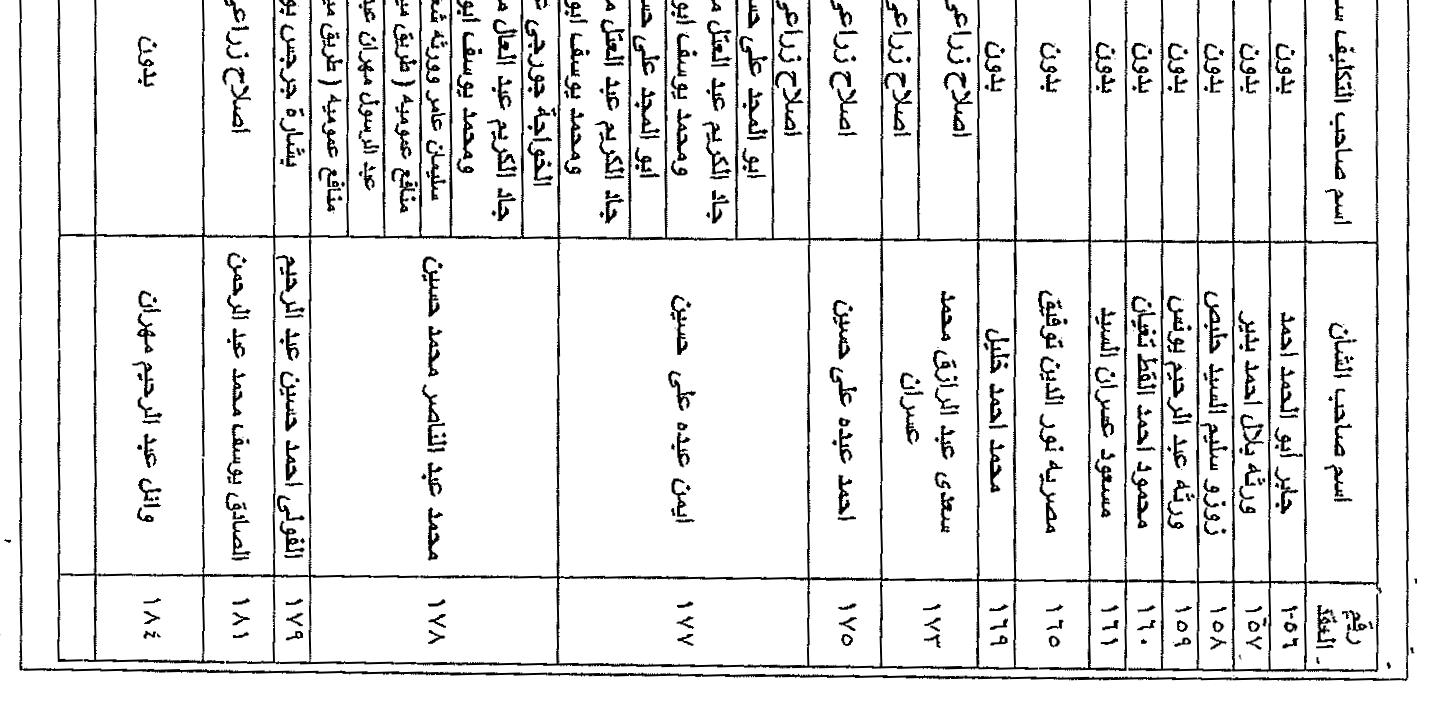 رقم العقد اسم صاحب الشأن اسم صاحب التكليف
١٥٦ جابر ابو الحمد احمد بدون
١٥٧ ورثه بلال احمد بدير بدون
١٥٨ زوزو سليم السيد حليص بدون
١٥٩ ورثه عبد الرحيم يونس بدون
١٦٠ محمود احمد القط تغيان بدون
١٦١ مسعود عمران السيد بدون
١٦٥ مصريه نور الدين توفيق بدون
١٦٩ محمد احمد خليل بدون
١٧٣ سعدى عبد الرازق محمد عسران اصلاح زراعى
اصلاح زراعى
١٧٥ احمد عبده على حسين اصلاح زراعى
١٧٧ ايمن عبده على حسين اصلاح زراعى
ابو المجد على
جاد الكريم عبد العتل
ومحمد يوسف ابو
ابو المجد على
جاد الكريم عبد العتل
ومحمد يوسف ابو
١٧٨ محمد عبد الناصر محمد حسين الخواجة جورجي
جاد الكريم عبد العال
ومحمد يوسف ابو
سليمان عامر وورثه
منافع عموميه ( طريق
عبد الرسول مهران
منافع عموميه ( طريق
١٧٩ الفولى احمد حسين عبد الرحيم بشارة جرجس
١٨١ الصادق يوسف محمد عبد الرحمن اصلاح زراعى
١٨٤ وائل عبد الرحيم مهران بدون